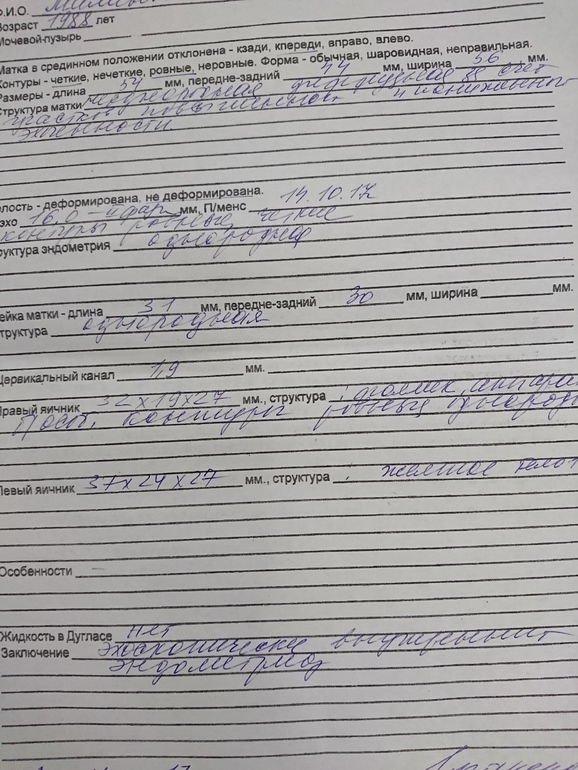 Ф.И.О.
Возраст 1988 лет
Мочевой-пузырь
Матка в срединном положении отклонена - кзади, кпереди, вправо, влево.
Контуры - четкие, нечеткие, ровные, неровные. Форма - обычная, шаровидная, неправильная.
Размеры - длина 54 мм, передне-задний 44 мм, ширина 56 мм.
Структура матки неоднородная диффузная за счет
участков повышенной и пониженного
эхогенности
лость - деформирована, не деформирована.
эхо 16,0 - мм, П/менс 14.10.17
контуры ровные, четкие
руктура эндометрия однородная
ейка матки - длина 31 мм, передне-задний 30 мм, ширина мм.
труктура однородная
Цервикальный канал 4,9 мм.
Правый яичник 32х19х27 мм., структура :
контуры ровные,
Левый яичник 37х24х27 мм., структура : желтое тело
Особенности —
Жидкость в Дугласе нет
Заключение эхоскопически внутренний
эндометриоз